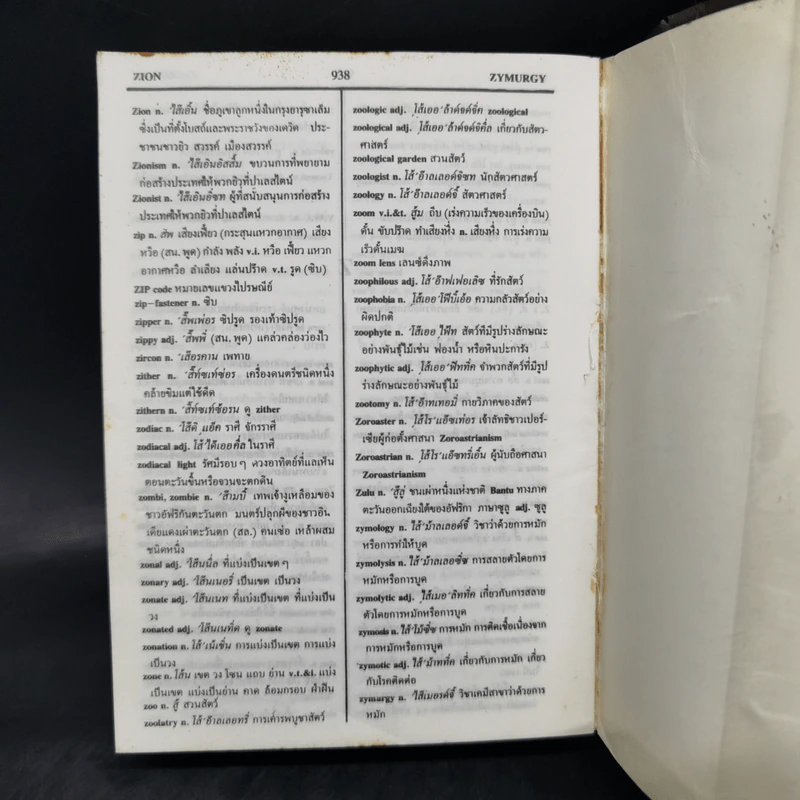 ZION 938 ZYMURGY
Zion n. 'ไส๊เอิ้น ชื่อภูเขาลูกหนึ่งในกรุงยารูซาเล็ม
ซึ่งเป็นที่ตั้งโบสถ์และพระราชวังของเดวิด ประ-
ชาชนชาวยิว สวรรค์ เมืองสวรรค์
Zionism n. 'ไส๊เอินอิสสึ้ม ขบวนการที่พยายาม
ก่อสร้างประเทศให้พวกยิวที่ปาเลสไตน์
Zionist n. 'ไส๊เอินอิ่ซท ผู้ที่สนับสนุนการก่อสร้าง
ประเทศให้พวกยิวที่ปาเลสไตน์
zip n. สัพ เสียงเฟี้ยว (กระสุนแหวกอากาศ) เสียง
หวือ (สน. พูด) กำลัง พลัง v.i. หวือ เฟี้ยว แหวก
อากาศหวือ ลำเลียง แล่นปร๊าด v.t. รูด (ซิบ)
ZIP code หมายเลขแขวงไปรษณีย์
zip-fastener n. ซิบ
zipper n. 'สิ๊พเพ่อร ซิปรูด รองเท้าซิปรูด
zippy adj. 'สิ๊พพี่ (สน. พูด) แคล่วคล่องว่องไว
zircon n. 'เสือรคาน เพทาย
zither n. 'สิ๊ทซ์เท่ซ่อร เครื่องดนตรีชนิดหนึ่ง
คล้ายขิมแต่ใช้ดีด
zithern n. 'สิ๊ทซ์เท่ซ้อรน ดู zither
zodiac n. 'โส๊ดิ แอ้ค ราศี จักรราศี
zodiacal adj. โส้'ได๊เออคึ่ล ในราศี
zodiacal light รัศมีรอบๆ ดวงอาทิตย์ที่แลเห็น
ตอนตะวันขึ้นหรือจวนจะตกดิน
zombi, zombie n. 'ส๊ามบี้ เทพเจ้างูเหลือมของ
ชาวอัฟริกันตะวันตก มนตร์ปลุกผีของชาวอิน-
เดียแดงเผ่าตะวันตก (สล.) คนเซ่อ เหล้าผสม
ชนิดหนึ่ง
zonal adj. 'โส๊นนึ่ล ที่แบ่งเป็นเขตๆ
zonary adj. 'โส๊นเนอรี่ เป็นเขต เป็นวง
zonate adj. 'โส๊นเนท ที่แบ่งเป็นเขต ที่แบ่งเป็น
วง
zonated adj. 'โส๊นเนทึ่ด ดู zonate
zonation n. โส้'เน้เชิ่น การแบ่งเป็นเขต การแบ่ง
เป็นวง
zone n. โส้น เขต วง โซน แถบ ย่าน v.t.&i. แบ่ง
เป็นเขต แบ่งเป็นย่าน คาด ล้อมกรอบ ฝ่าฝืน
zoo n. สู้ สวนสัตว์
zoolatry n. โส้'อ๊าลเลอทรี่ การเคารพบูชาสัตว์
zoologic adj. โส้เออ'ล้าด์จด์จิ่ค zoological
zoological adj. โส้เออ'ล้าด์จด์จิคึ่ล เกี่ยวกับสัตว-
ศาสตร์
zoological garden สวนสัตว์
zoologist n. โส้'อ๊าลเลอด์จิซท นักสัตวศาสตร์
zoology n. โส้'อ๊าลเลอด์จี้ สัตวศาสตร์
zoom v.i.&t. สู้ม ถีบ (เร่งความเร็วของเครื่องบิน)
ดั้น ขับปร๊าด ทำเสียงหึ่ง n. เสียงหึ่ง การเร่งความ
เร็วดั้นเมฆ
zoom lens เลนซ์ดึงภาพ
zoophilous adj. โส้'อ๊าฟเฟอเลิซ ที่รักสัตว์
zoophobia n. โส้เออ'โฟ๊บี้เอ้อ ความกลัวสัตว์อย่าง
ผิดปกติ
zoophyte n. 'โส๊เออ ไฟ้ท สัตว์ที่มีรูปร่างลักษณะ
อย่างพันธุ์ไม้เช่น ฟองน้ำ หรือหินปะการัง
zoophytic adj. โส้เออ'ฟิททิ่ค จำพวกสัตว์ที่มีรูป
ร่างลักษณะอย่างพันธุ์ไม้
zootomy n. โส้'อ๊าทเทอมี่ กายวิภาคของสัตว์
Zoroaster n. โส้โร'แอ๊ซเท่อร เจ้าลัทธิชาวเปอร์-
เซียผู้ก่อตั้งศาสนา Zoroastrianism
Zoroastrian n. โส้โร'แอ๊ซทรี่เอิ้น ผู้นับถือศาสนา
Zoroastrianism
Zulu n. 'สู๊ลู่ ชนเผ่าหนึ่งแห่งชาติ Bantu ทางภาค
ตะวันออกเฉียงใต้ของอัฟริกา ภาษาซูลู adj. ซูลู
zymology n. ไส้'ม้าลเลอด์จี้ วิชาว่าด้วยการหมัก
หรือการทำให้บูด
zymolysis n. ไส้'ม้าลเลอซิ่ซ การสลายตัวโดยการ
หมักหรือการบูด
zymolytic adj. ไส้เมอ'ลิททิ่ค เกี่ยวกับการสลาย
ตัวโดยการหมักหรือการบูด
zymosis n. ไส้'โม้ซิ่ซ การหมัก การติดเชื้อเนื่องจาก
การหมักหรือการบูด
zymotic adj. ไส้'ม้าททิ่ค เกี่ยวกับการหมัก เกี่ยว
กับโรคติดต่อ
zymurgy n. 'ไส๊เมอรด์จี้ วิชาเคมีสาขาว่าด้วยการ
หมัก